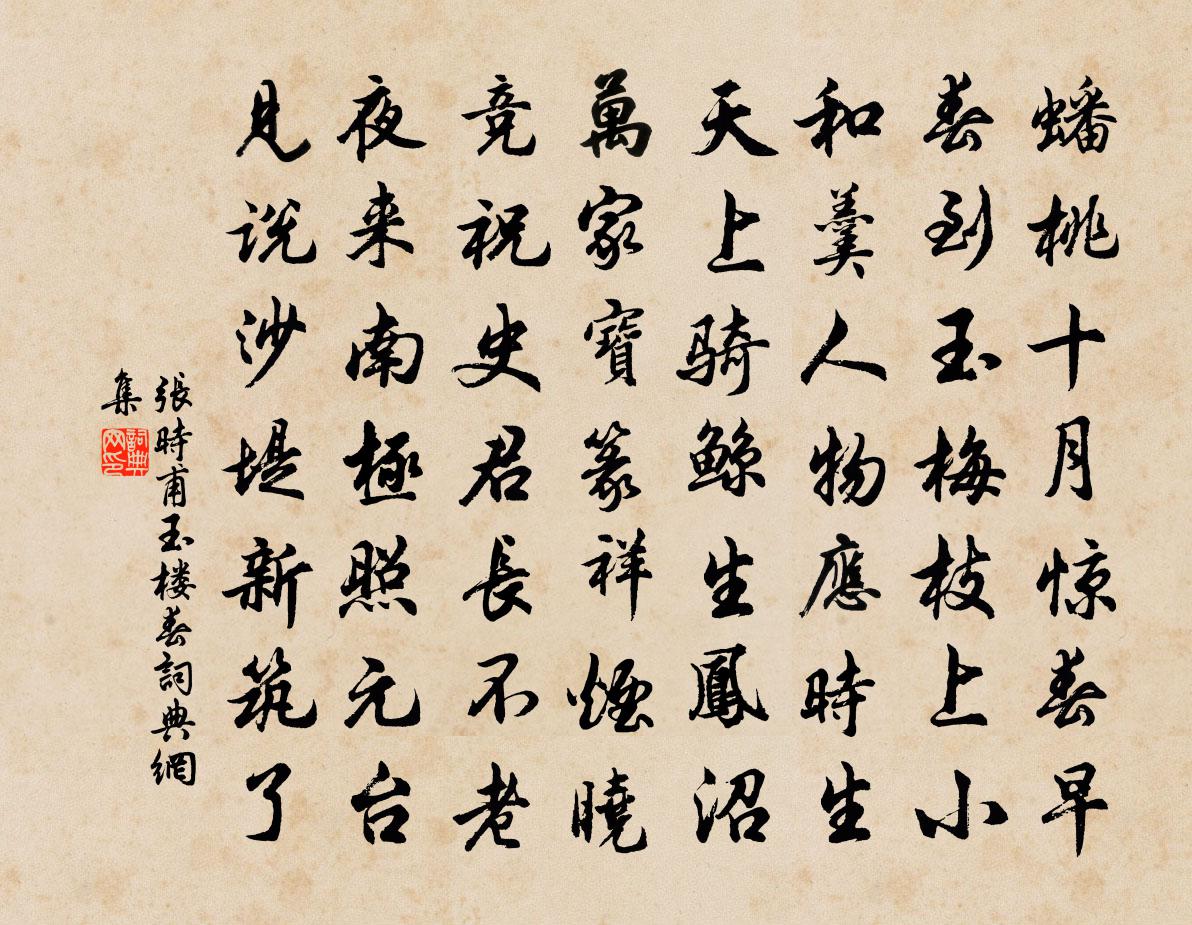 蟠桃十月惊春早
春到玉梅枝上小
和羹人物應時生
天上骑鲸生鳳沼
萬家寶篆祥煙曉
竞祝史君長不老
夜来南極照元台
見说沙堤新筑了
張時甫玉楼春詞典網
集
詞典网印